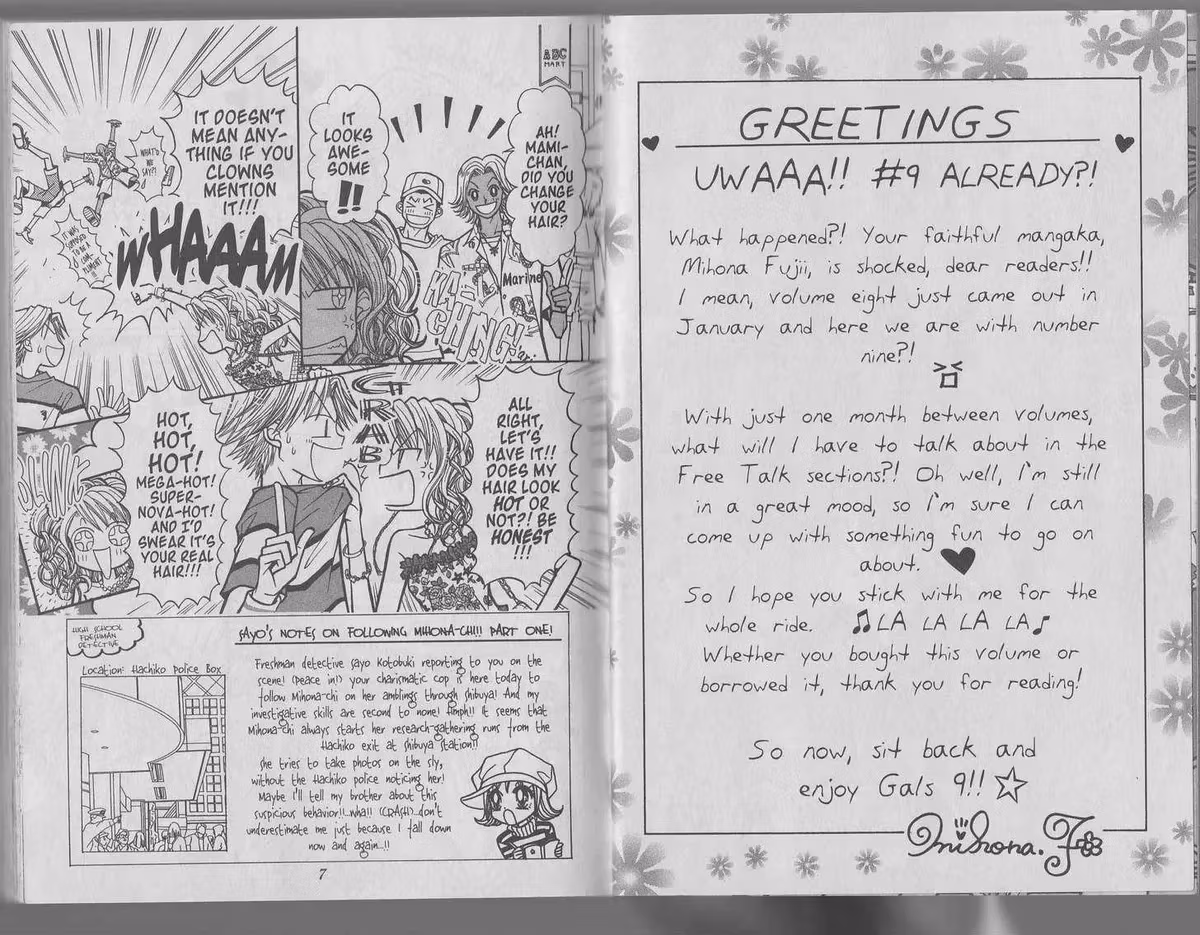 ABC
MART
AH!
MAMI-
CHAN,
DID YOU
CHANGE
YOUR
HAIR?
IT
LOOKS
AWE-
SOME
!!
Marine
KA-
CHING!
IT DOESN'T
MEAN ANY-
THING IF YOU
CLOWNS
MENTION
IT!!!
WHAT'D
WE
SAY?!
IT WAS
SUPPOSED
TO BE A
COM-
PLIMENT
WHAAAM
ALL
RIGHT,
LET'S
HAVE IT!!
DOES MY
HAIR LOOK
HOT OR
NOT?! BE
HONEST
!!!
GRAB
HOT,
HOT,
HOT!
MEGA-HOT!
SUPER-
NOVA-HOT!
AND I'D
SWEAR IT'S
YOUR REAL
HAIR!!!
HIGH SCHOOL
FRESHMAN
DETECTIVE
SAYO'S NOTES ON FOLLOWING MIHONA-CHI!! PART ONE!
Location: Hachiko Police Box
Freshman detective Sayo Kotobuki reporting to you on the
scene! (Peace in!) Your charismatic cop is here today to
follow Mihona-chi on her amblings through Shibuya! And my
investigative skills are second to none! Hmph!! It seems that
Mihona-chi always starts her research-gathering runs from the
Hachiko exit at Shibuya Station!!
She tries to take photos on the sly,
without the Hachiko police noticing her!
Maybe I'll tell my brother about this
suspicious behavior!!...wha!! (CRASH)...don't
underestimate me just because I fall down
now and again...!!
7
GREETINGS
UWAAA!! #9 ALREADY?!
What happened?! Your faithful mangaka,
Mihona Fujii, is shocked, dear readers!!
I mean, volume eight just came out in
January and here we are with number
nine?!
With just one month between volumes,
what will I have to talk about in the
Free Talk sections?! Oh well, I'm still
in a great mood, so I'm sure I can
come up with something fun to go on
about. ♥
So I hope you stick with me for the
whole ride. ♫LA LA LA LA♪
Whether you bought this volume or
borrowed it, thank you for reading!
So now, sit back and
enjoy Gals 9!! ☆
Mihona. F